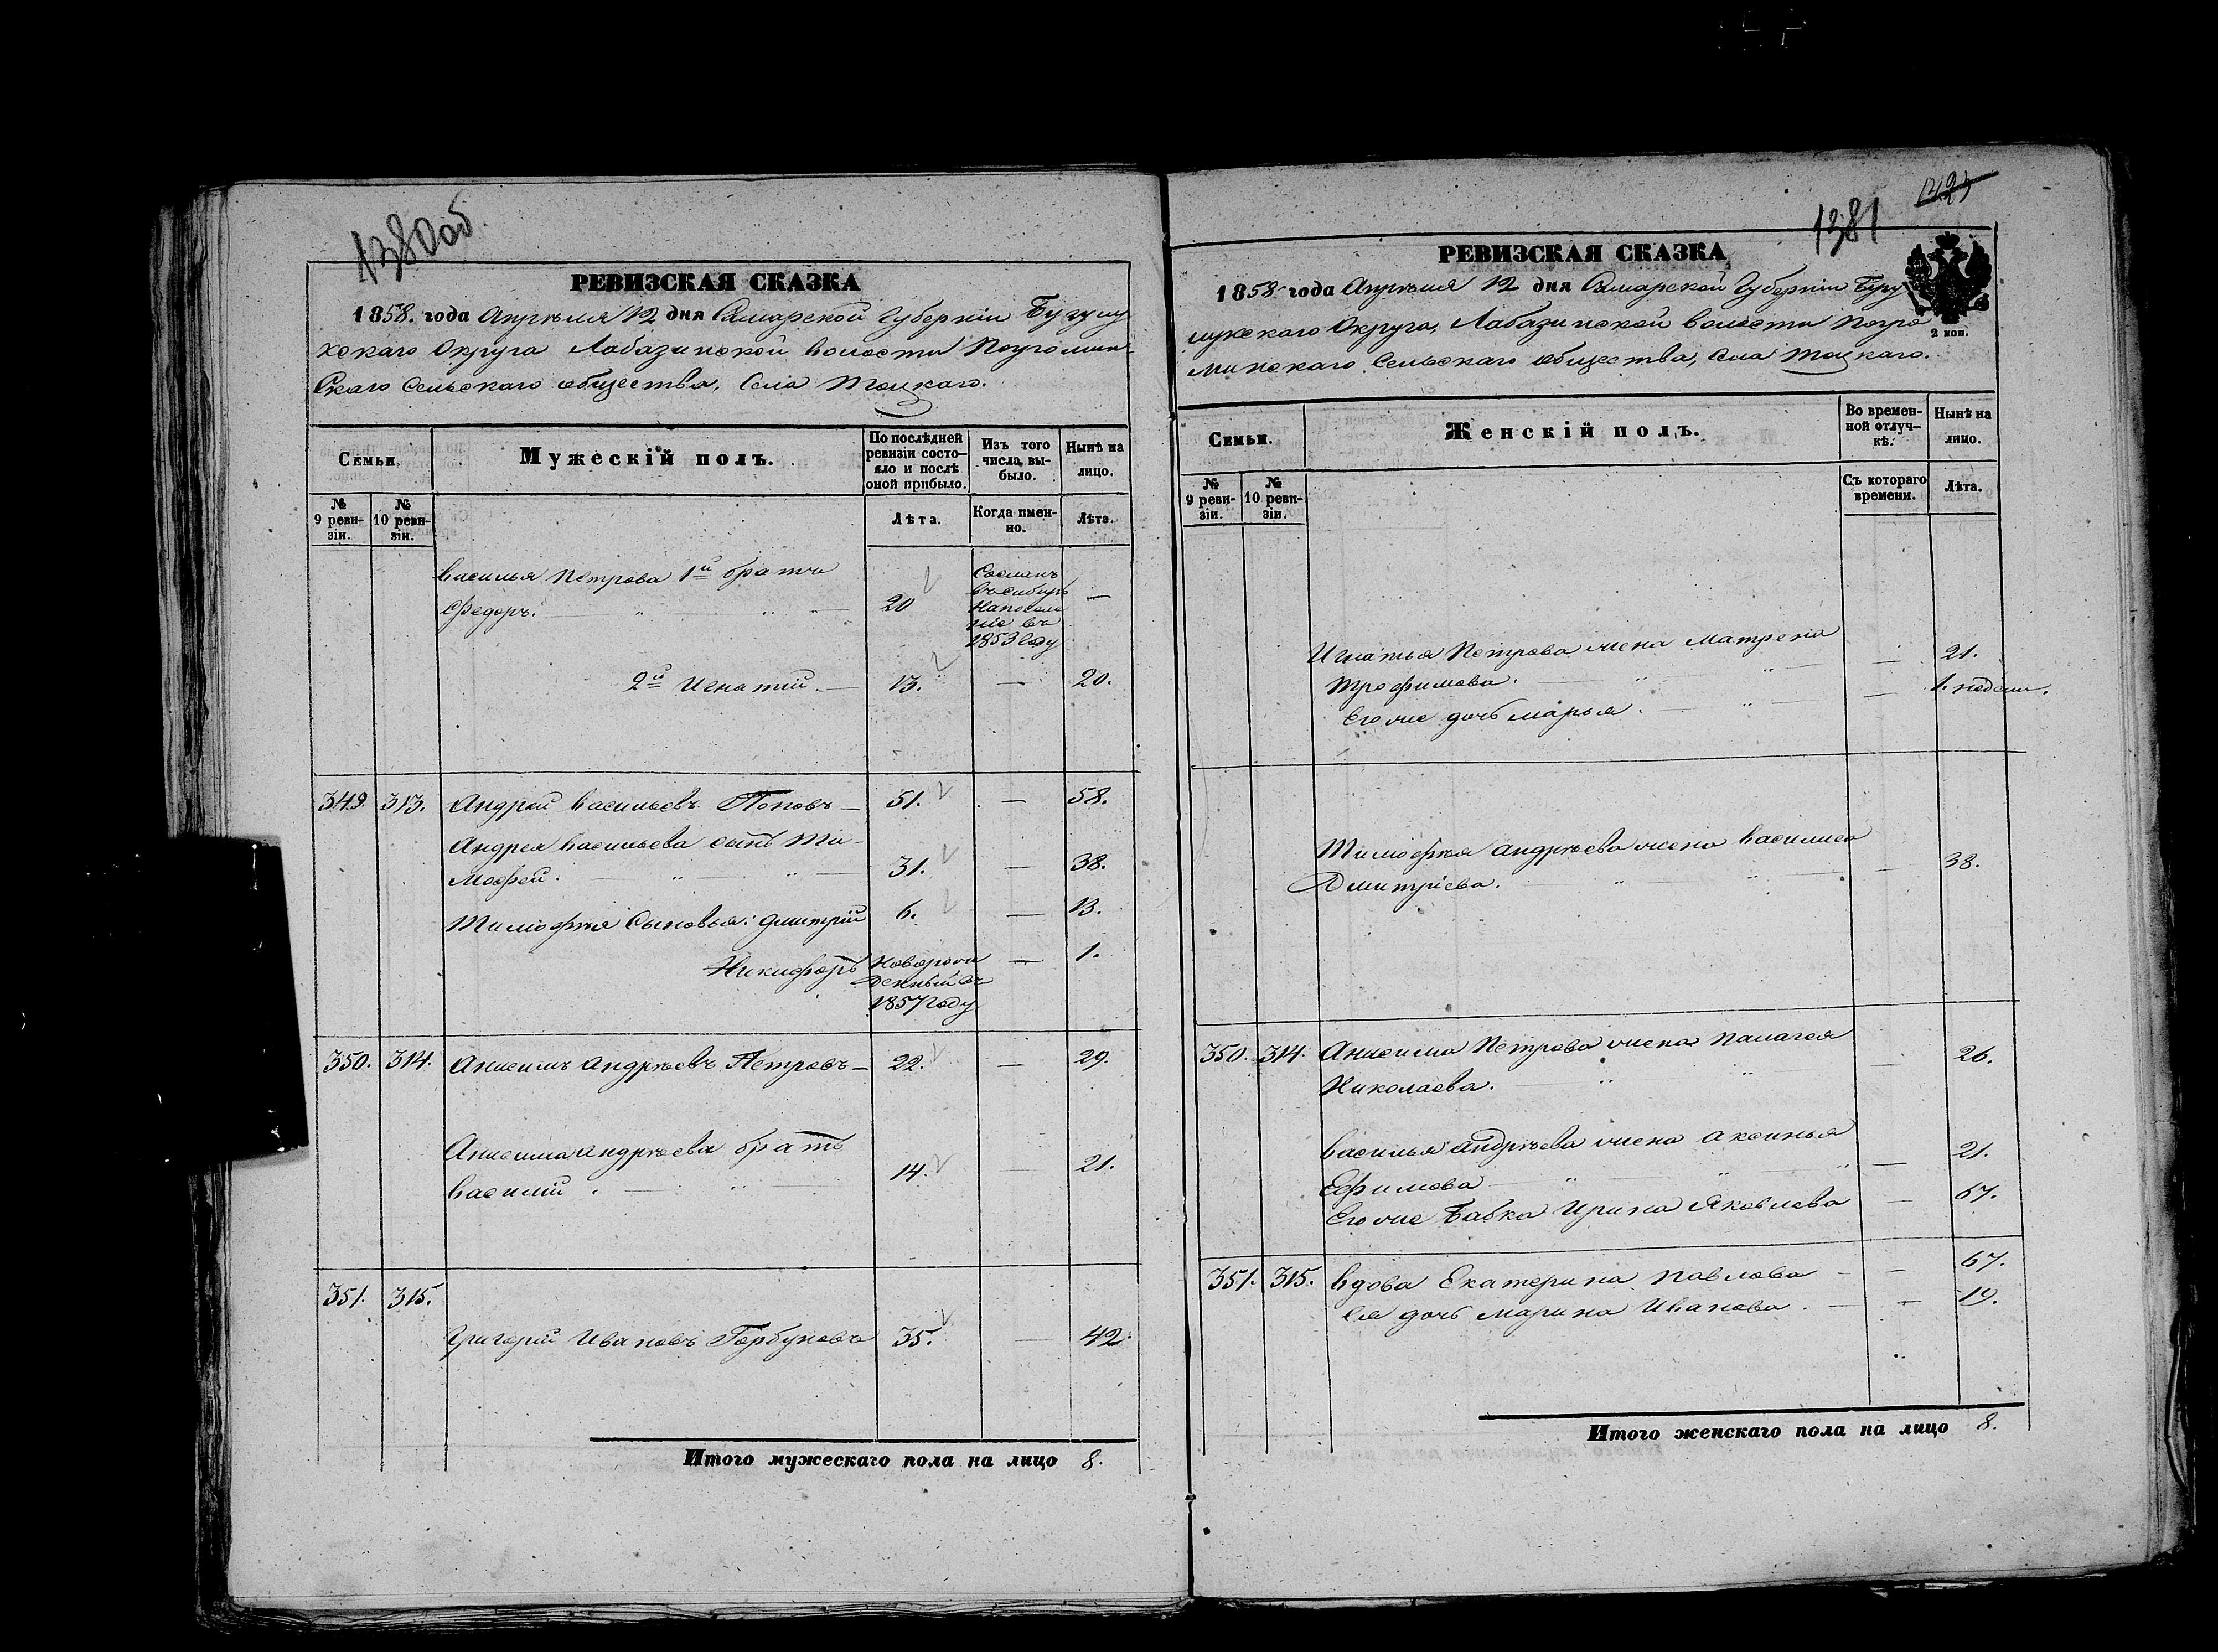 1380об
РЕВИЗСКАЯ СКАЗКА
1858. года Апрѣля 12 дня Самарской Губерніи Бузулу
кскаго Округа Лабазинской волости Погромин-
скаго Сельскаго общества, Села Тоцкаго.
Семьи.
Мужескій полъ.
По послѣдней ревизіи состо-яло и послѣ оной прибыло.
Изъ того числа, вы-было.
Нынѣ на лицо.
№ 9 реви-зіи.
№ 10 реви-зіи.
Лѣта.
Когда имен-но.
Лѣта.
Василья Петрова 1й брать
Федоръ. 20 Сосланъ —
въ Сибирь
на поселе
ніе въ
1853 году
2й Игнатій. — 13. — 20.
349. 313. Андрей Васильевъ Поповъ — 51. — 58.
Андрея Васильева сынъ Ти-
мофей. 31. — 38.
Тимофѣя Сыновья: Дмитрій 6. — 13.
Никифоръ Новорож — 1.
денный въ
1857 году
350. 314. Анисимъ Андрѣевъ Петровъ — 22. — 29.
Анисима Андрѣева братъ
Василій. 14. — 21.
351. 315.
Григорій Ивановъ Горбуновъ 35. — 42.
Итого мужескаго пола на лицо 8.
1381
РЕВИЗСКАЯ СКАЗКА
1858 года Апрѣля 12 дня Самарской Губерніи Бузу
лукскаго Округа, Лабазинской волости Погро
минскаго Сельскаго общества, Села Тоцкаго.
2 коп.
Семьи.
Женскій полъ.
Во времен-ной отлуч-кѣ.
Нынѣ на лицо.
№ 9 реви-зіи.
№ 10 реви-зіи.
Съ котораго времени.
Лѣта.
Игнатья Петрова жена Матрена
Трофимова. — 21.
Его же дочь Марья. — 1. недели.
Тимофѣя Андрѣева жена Василиса
Дмитріева. — 38.
350. 314. Анисима Петрова жена Палагея
Николаева. — 26.
Василья Андрѣева жена Аксинья
Ефимова — 21.
Его же Бабка Ирина Яковлева — 67.
351. 315. Вдова Екатерина Павлова — — 67.
Ея дочь Марина Иванова. — — 19.
Итого женскаго пола на лицо 8.